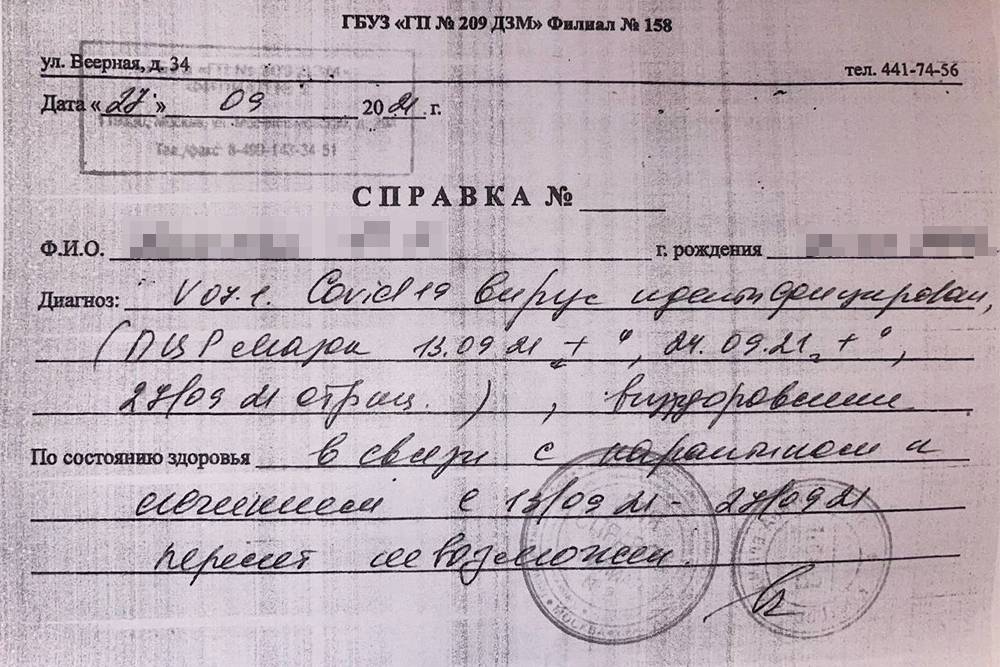 ГБУЗ «ГП № 209 ДЗМ» Филиал № 158
ул. Веерная, д. 34
тел. 441-74-56
Дата «27» 09 2021 г.
Тел./факс 8-499-143-34-51
СПРАВКА №
Ф.И.О. г. рождения
Диагноз: U07.1. Covid 19 вирус идентифицирован,
(ПЦР мазок 13.09 21 „+“, 24.09.21 „+“,
27/09 21 отриц.), выздоровление
По состоянию здоровья в связи с карантином и
лечением с 13/09 21 - 27/09 21
перелет невозможен.